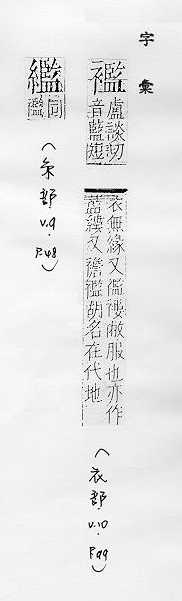 字彙
襤
盧談切
音藍短
衣無緣又襤褸敝服也亦作
藍縷又襜襤胡名在代地
(衣部. v.10. P.99)
繿
同
襤
(糸部 v.9. P.48)